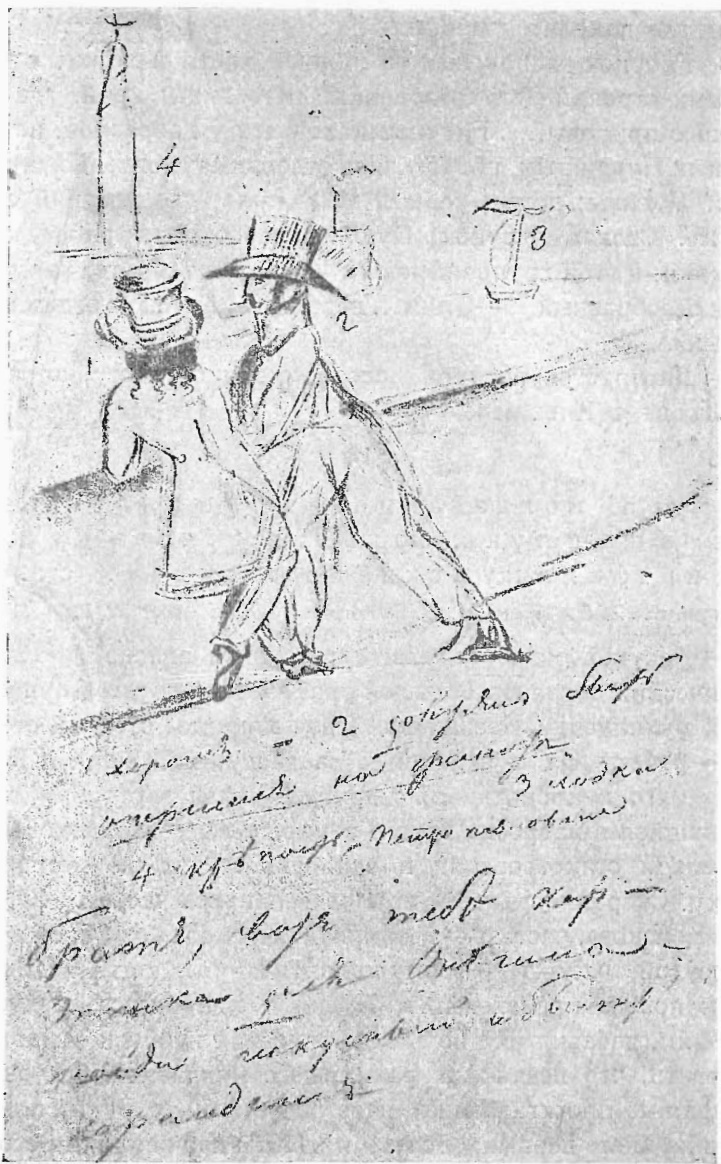 4
3
2
1
1 хорошъ – 2 долженъ быть
опершися на гранитъ
3 лодка
4 крѣпость Петропавловская
братъ, вотъ тебѣ кар-
тинка для Онѣгина –
найди искусный и быстрый
карандашъ